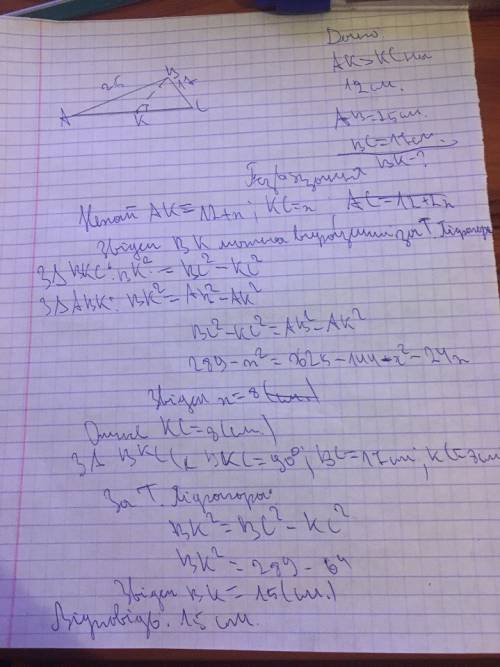 Дано:
AK>KC на
12 см.
AB=25 см.
BC=17 см.
BK-?
25
B
17
A
K
C
Розв'язання
Нехай AK=12+x; KC=x AC=12+2x
Звідси BK можна виразити за Т. Піфагора
З Δ BKC: BK²=BC²-KC²
З Δ ABK: BK²=AB²-AK²
BC²-KC²=AB²-AK²
289-x²=625-144-x²-24x
Звідси x=8(см)
Отже KC=8(см.)
З Δ BKC(∠BKC=90°; BC=17см; KC=8см
За Т. Піфагора
BK²=BC²-KC²
BK²=289-64
Звідси BK=15(см.)
Відповідь: 15 см.